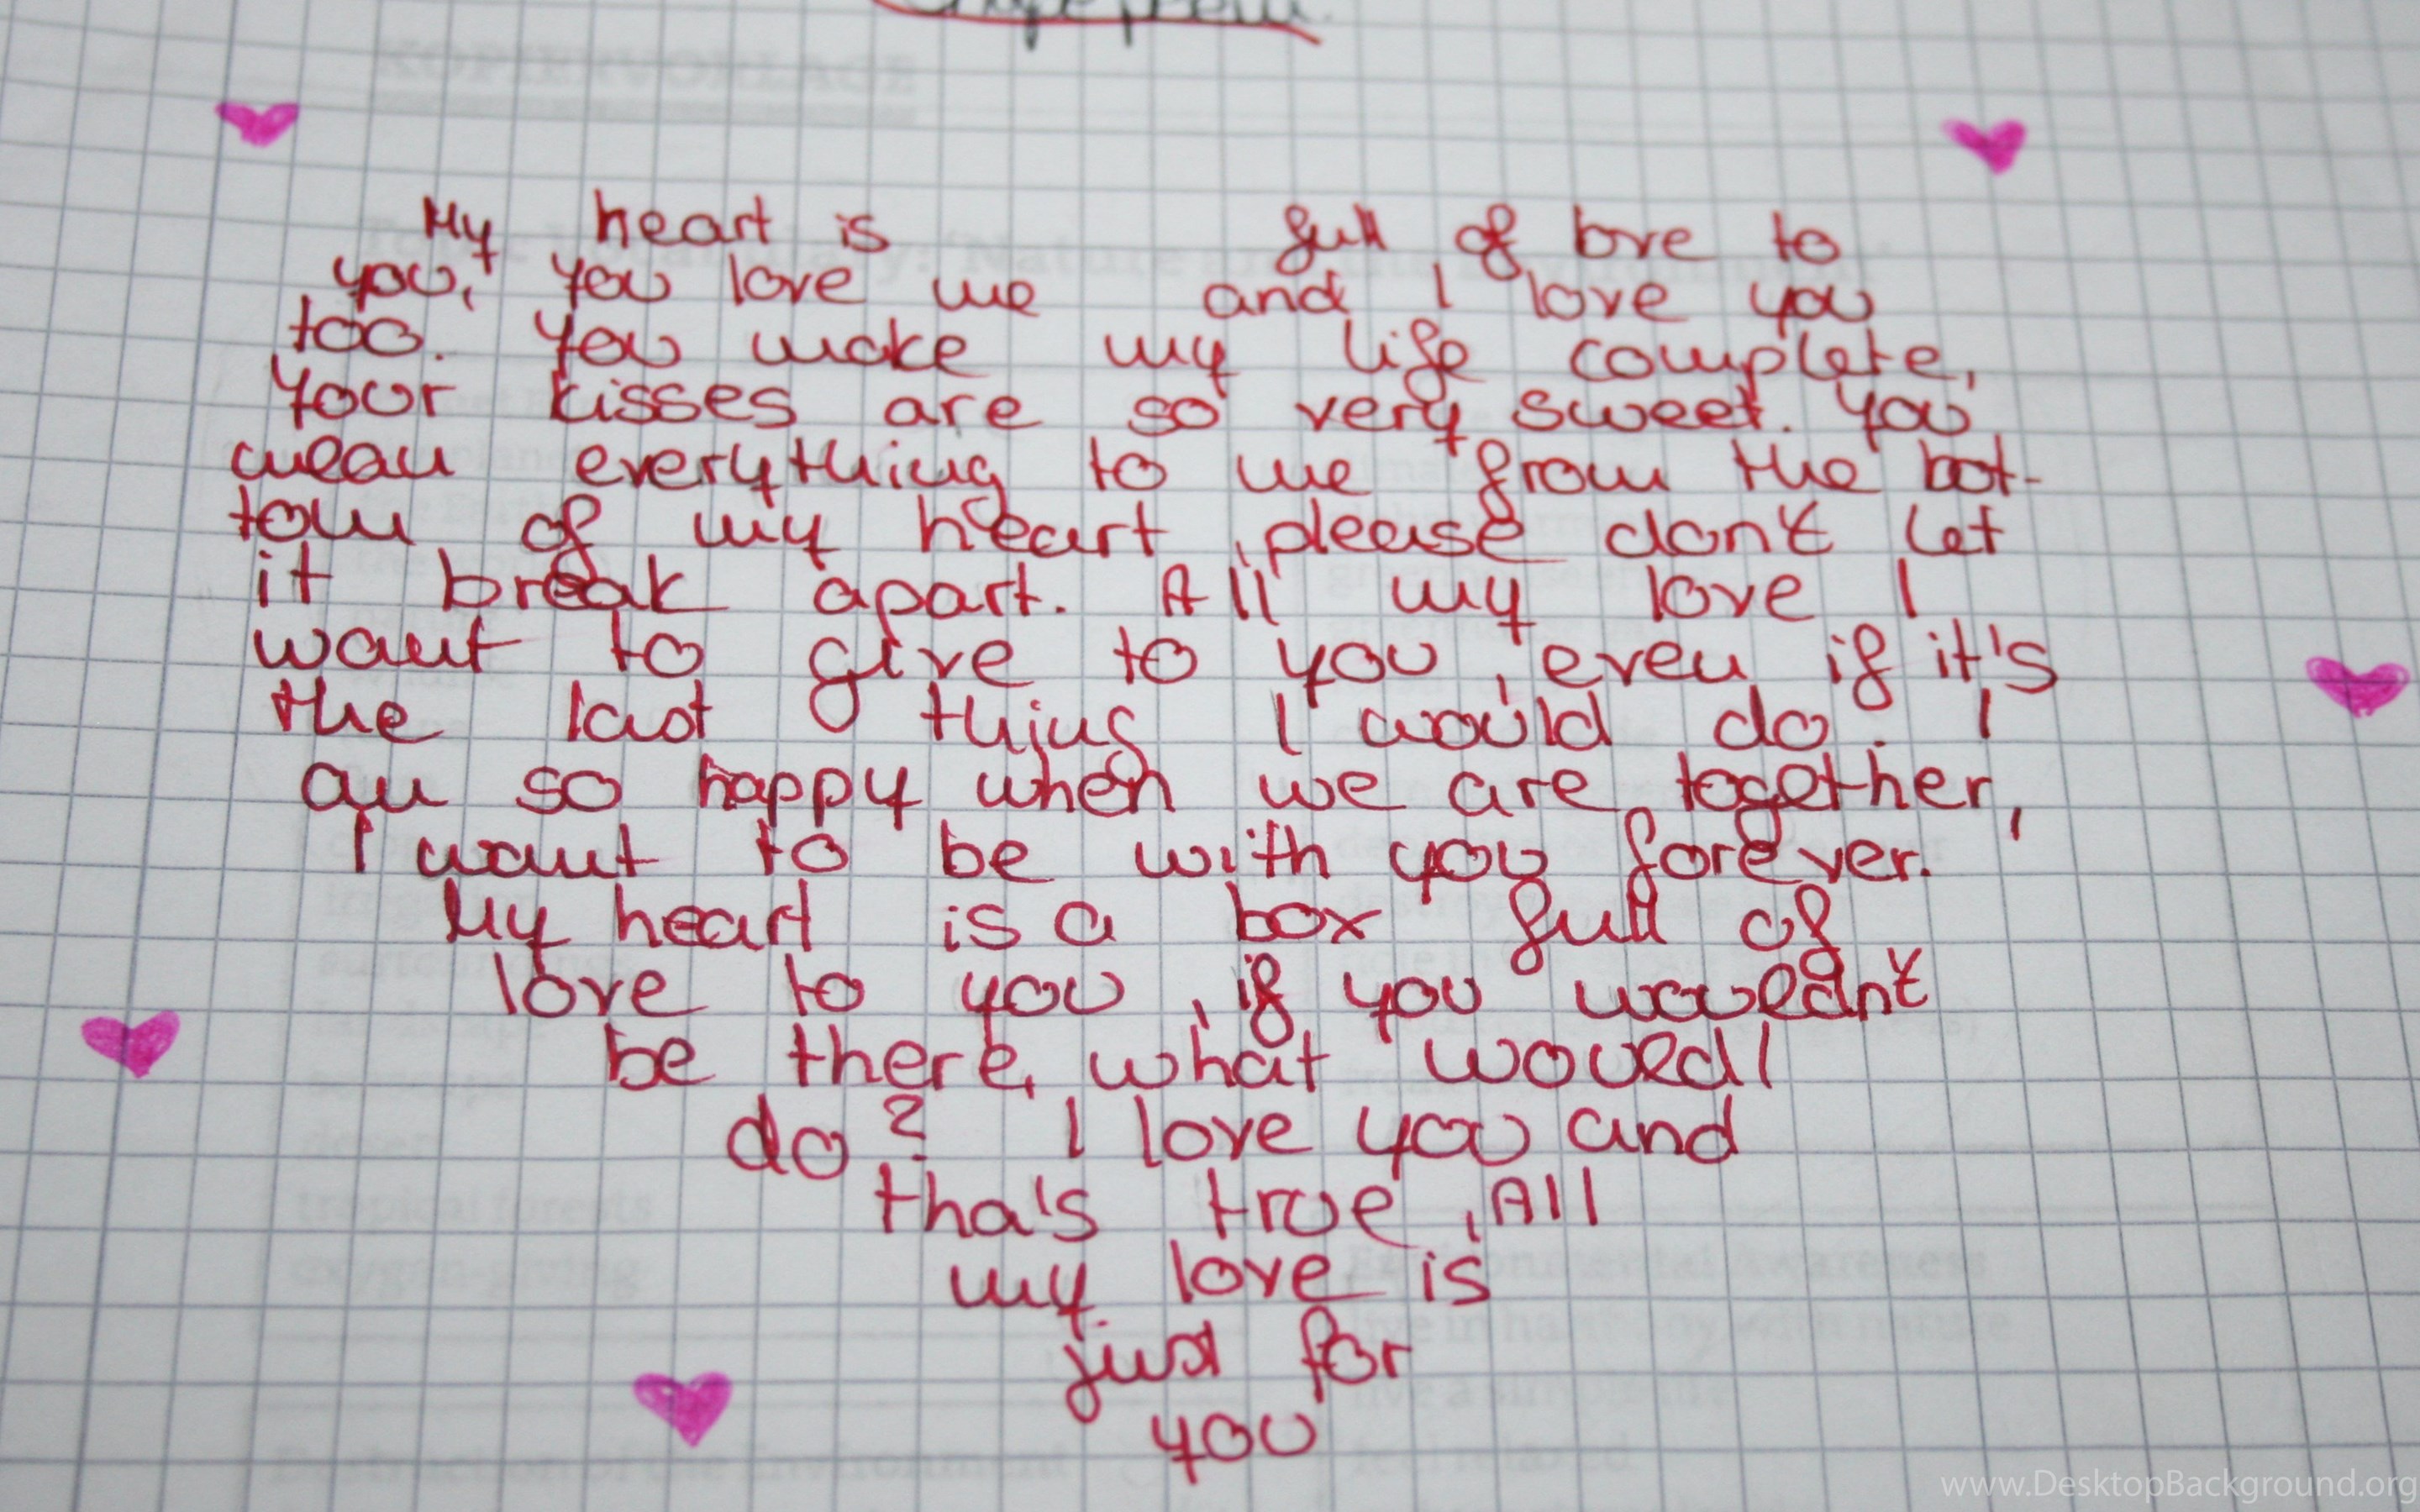 KOPIERVORLAGE
My heart is full of love to
you, You love me and I love you
too. You make my life complete,
Your kisses are so very sweet. You
mean everything to me from the bot-
tom of my heart, please don't let
it break apart. All my love I
want to give to you, even if it's
the last thing I would do. I
am so happy when we are together,
I want to be with you forever.
My heart is a box full of
love to you, if you wouedn't
be there, what woued I
do? I love you and
tha's true, All
my love is
just for
you
tropical forests
oxygen-giving
Environmental Awareness
live in harmony with nature
Destruction of the Environment
www.DesktopBackground.org